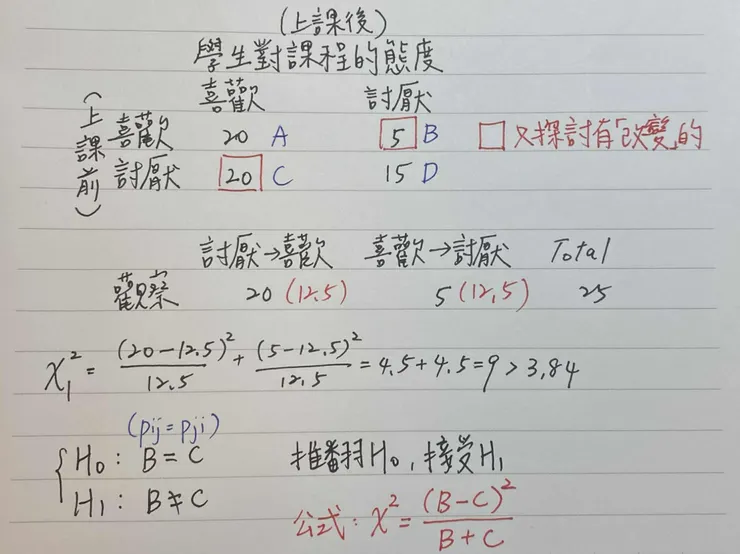 (上課後)
學生對課程的態度
喜歡 討厭
(上課前)
喜歡 20 A 5 B □只探討有「改變」的
討厭 20 C 15 D
討厭→喜歡 喜歡→討厭 Total
觀察 20 (12.5) 5 (12.5) 25
χ₁² = (20-12.5)²/12.5 + (5-12.5)²/12.5 = 4.5+4.5=9 > 3.84
(pij=pji)
H₀: B = C 推翻H₀,接受H₁
H₁: B ≠ C
公式: χ² = (B-C)²/B+C